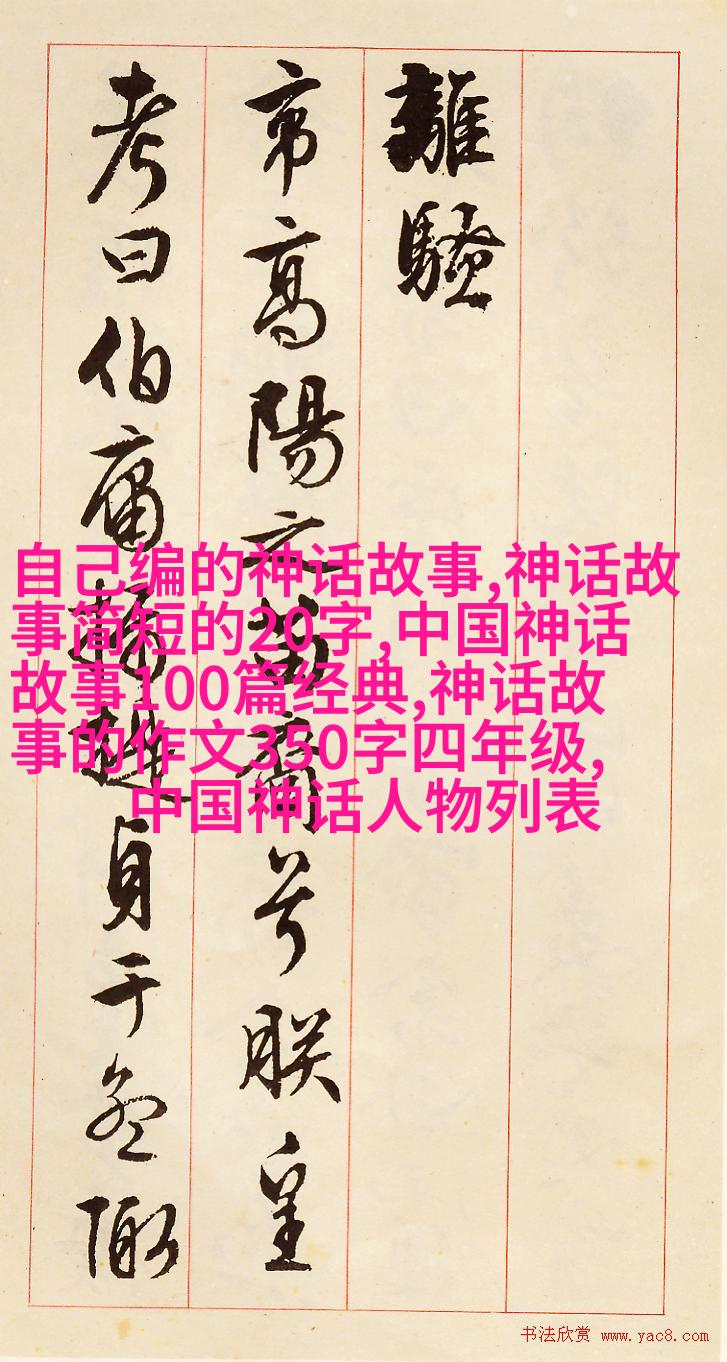 離騷
帝高陽之苗裔兮朕皇
考曰伯庸攝提貞于孟陬
自己编的神话故事,神话故
事简短的20字,中国神话
故事100篇经典,神话故
事的作文350字四年级,
中国神话人物列表
书法欣赏 www.yac8.com